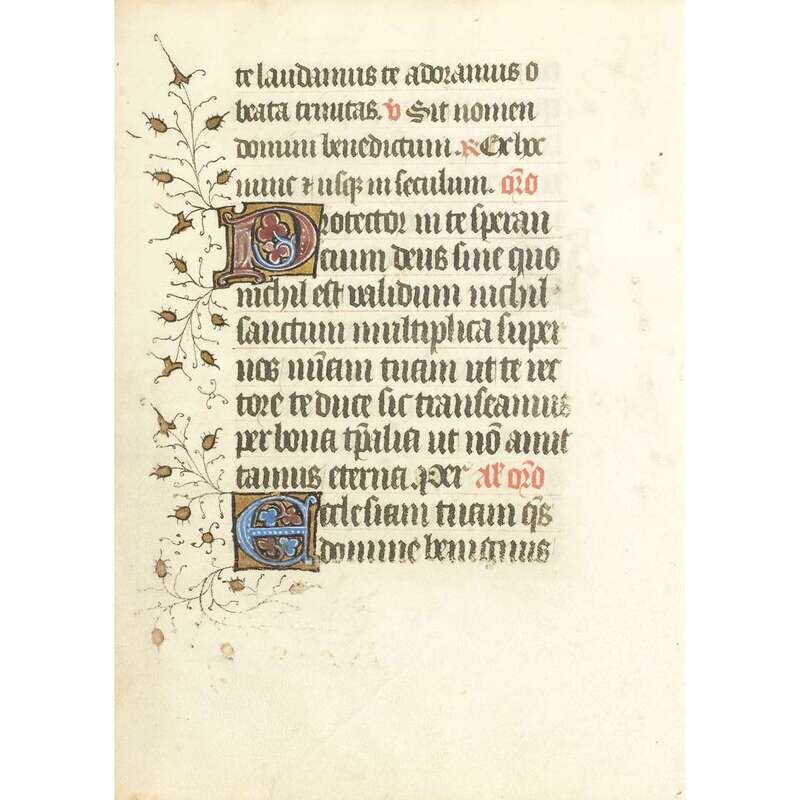 te laudamus te adoramus o
beata trinitas. v̄ Sit nomen
domini benedictum. R Ex hoc
nunc ⁊ usq; in seculum. or̄o
Protector in te speran
cium deus sine quo
nichil est validum nichil
sanctum multiplica super
nos mīam tuam ut te rec
tore te duce sic transeamus
per bona tp̄alia ut nō amit
tamus eterna. Per al' or̄o
Ecclesiam tuam q̄s
domine benignus